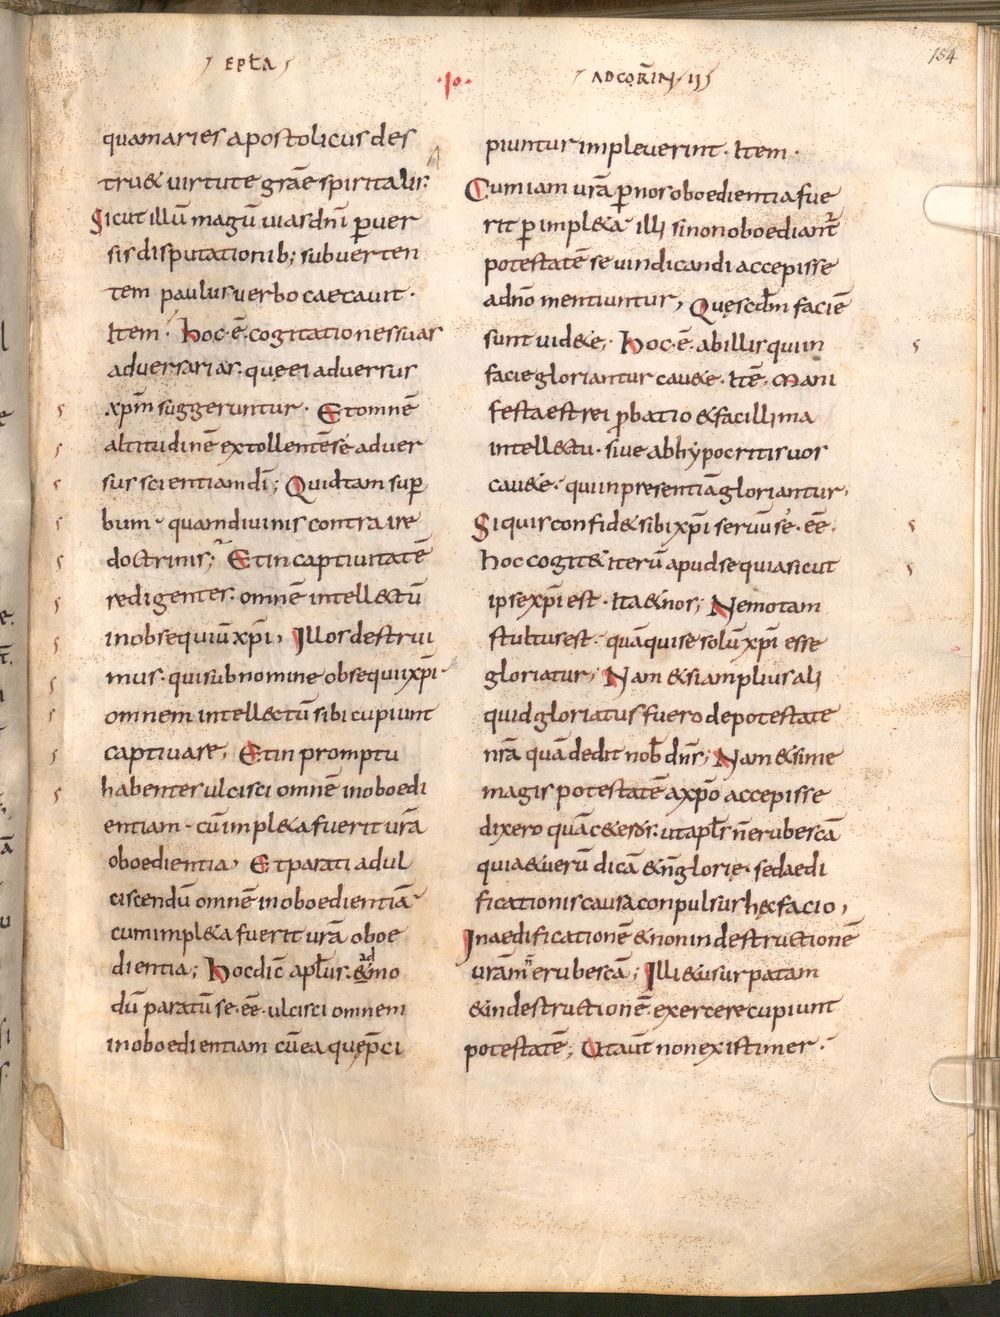 EPŁA
·IO·
AD CORĪN · II
154
quam aries apostolicus des
tru& uirtute grāe spiritalis:
Sicut illū magū uias dn̄i ꝑuer
sis disputationib; subuerten
tem paulus uerbo caecauit ·
Item · hoc · ē · cogitationes suas
aduersarias · quę ei aduersus
xpm̄ suggeruntur · Et omnē
altitudinē extollentē se aduer
sus scientiam dī; Quid tam suꝑ
bum · quam diuinis contraire
doctrinis; Et in captiuitatē
redigentes · omnē intellectū
in obsequiū xp̄i, Illos destrui
mus · qui sub nomine obsequii xp̄i ·
omnem intellectū sibi cupiunt
captiuare, Et in promptu
habentes ulcisci omnē inoboedi
entiam · cū impl&a fuerit urā
oboedientia, Et parati ad ul
ciscendū omnē inoboedientiā
cum impl&a fuerit urā oboe
dientia; hoc dic̄ apłus · ad
&mo
dū paratū se · eē · ulcisci omnem
inoboedientiam cū ea quę p̄ci
piuntur impleuerint · Item ·
Cum iam urā ꝑ nos oboedientia fue
rit ꝑ impl&a illi si non oboediant
potestatē se uindicandi accepisse
a dn̄o mentiuntur, Quę scd̄m faciē
sunt uid&e, hoc · ē · ab illis qui in
facie gloriantur cau&e · Itē · Mani
festa est rei ꝓbatio & facillima
intellectu · siue ab hypocritis uos
cau&e · qui in presentiā gloriantur,
Si quis confid& sibi xp̄i seruū sé · eē ·
hoc cogit& iterū apud se quia sicut
ipse xp̄i est · Ita & nos; Nemo tam
stultus est · quā qui se solū xp̄i esse
gloriatur, Nam & si amplius ali
quid gloriatus fuero de potestate
nrā quā dedit nob̄ dn̄s; Nam & si me
magis potestatē a xp̄o accepisse
dixero quā c&eros · ut apłs n̄ erubescā
quia & uerū dicā & n̄ glorię · sed aedi
ficationis causa conpulsus hęc facio,
In aedificationē & non in destructionē
urām n̄ erubescā; Illi & usurpatam
& in destructionē exercere cupiunt
potestatē; Ut aut̄ non existimer ·